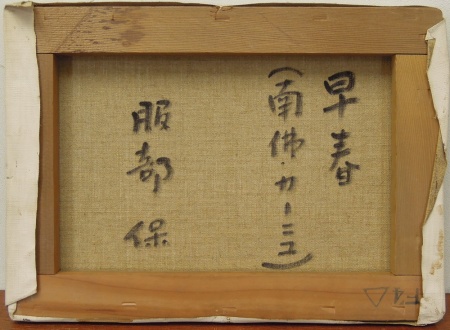 早春
(南佛・カーニュ)
服部 保
F4